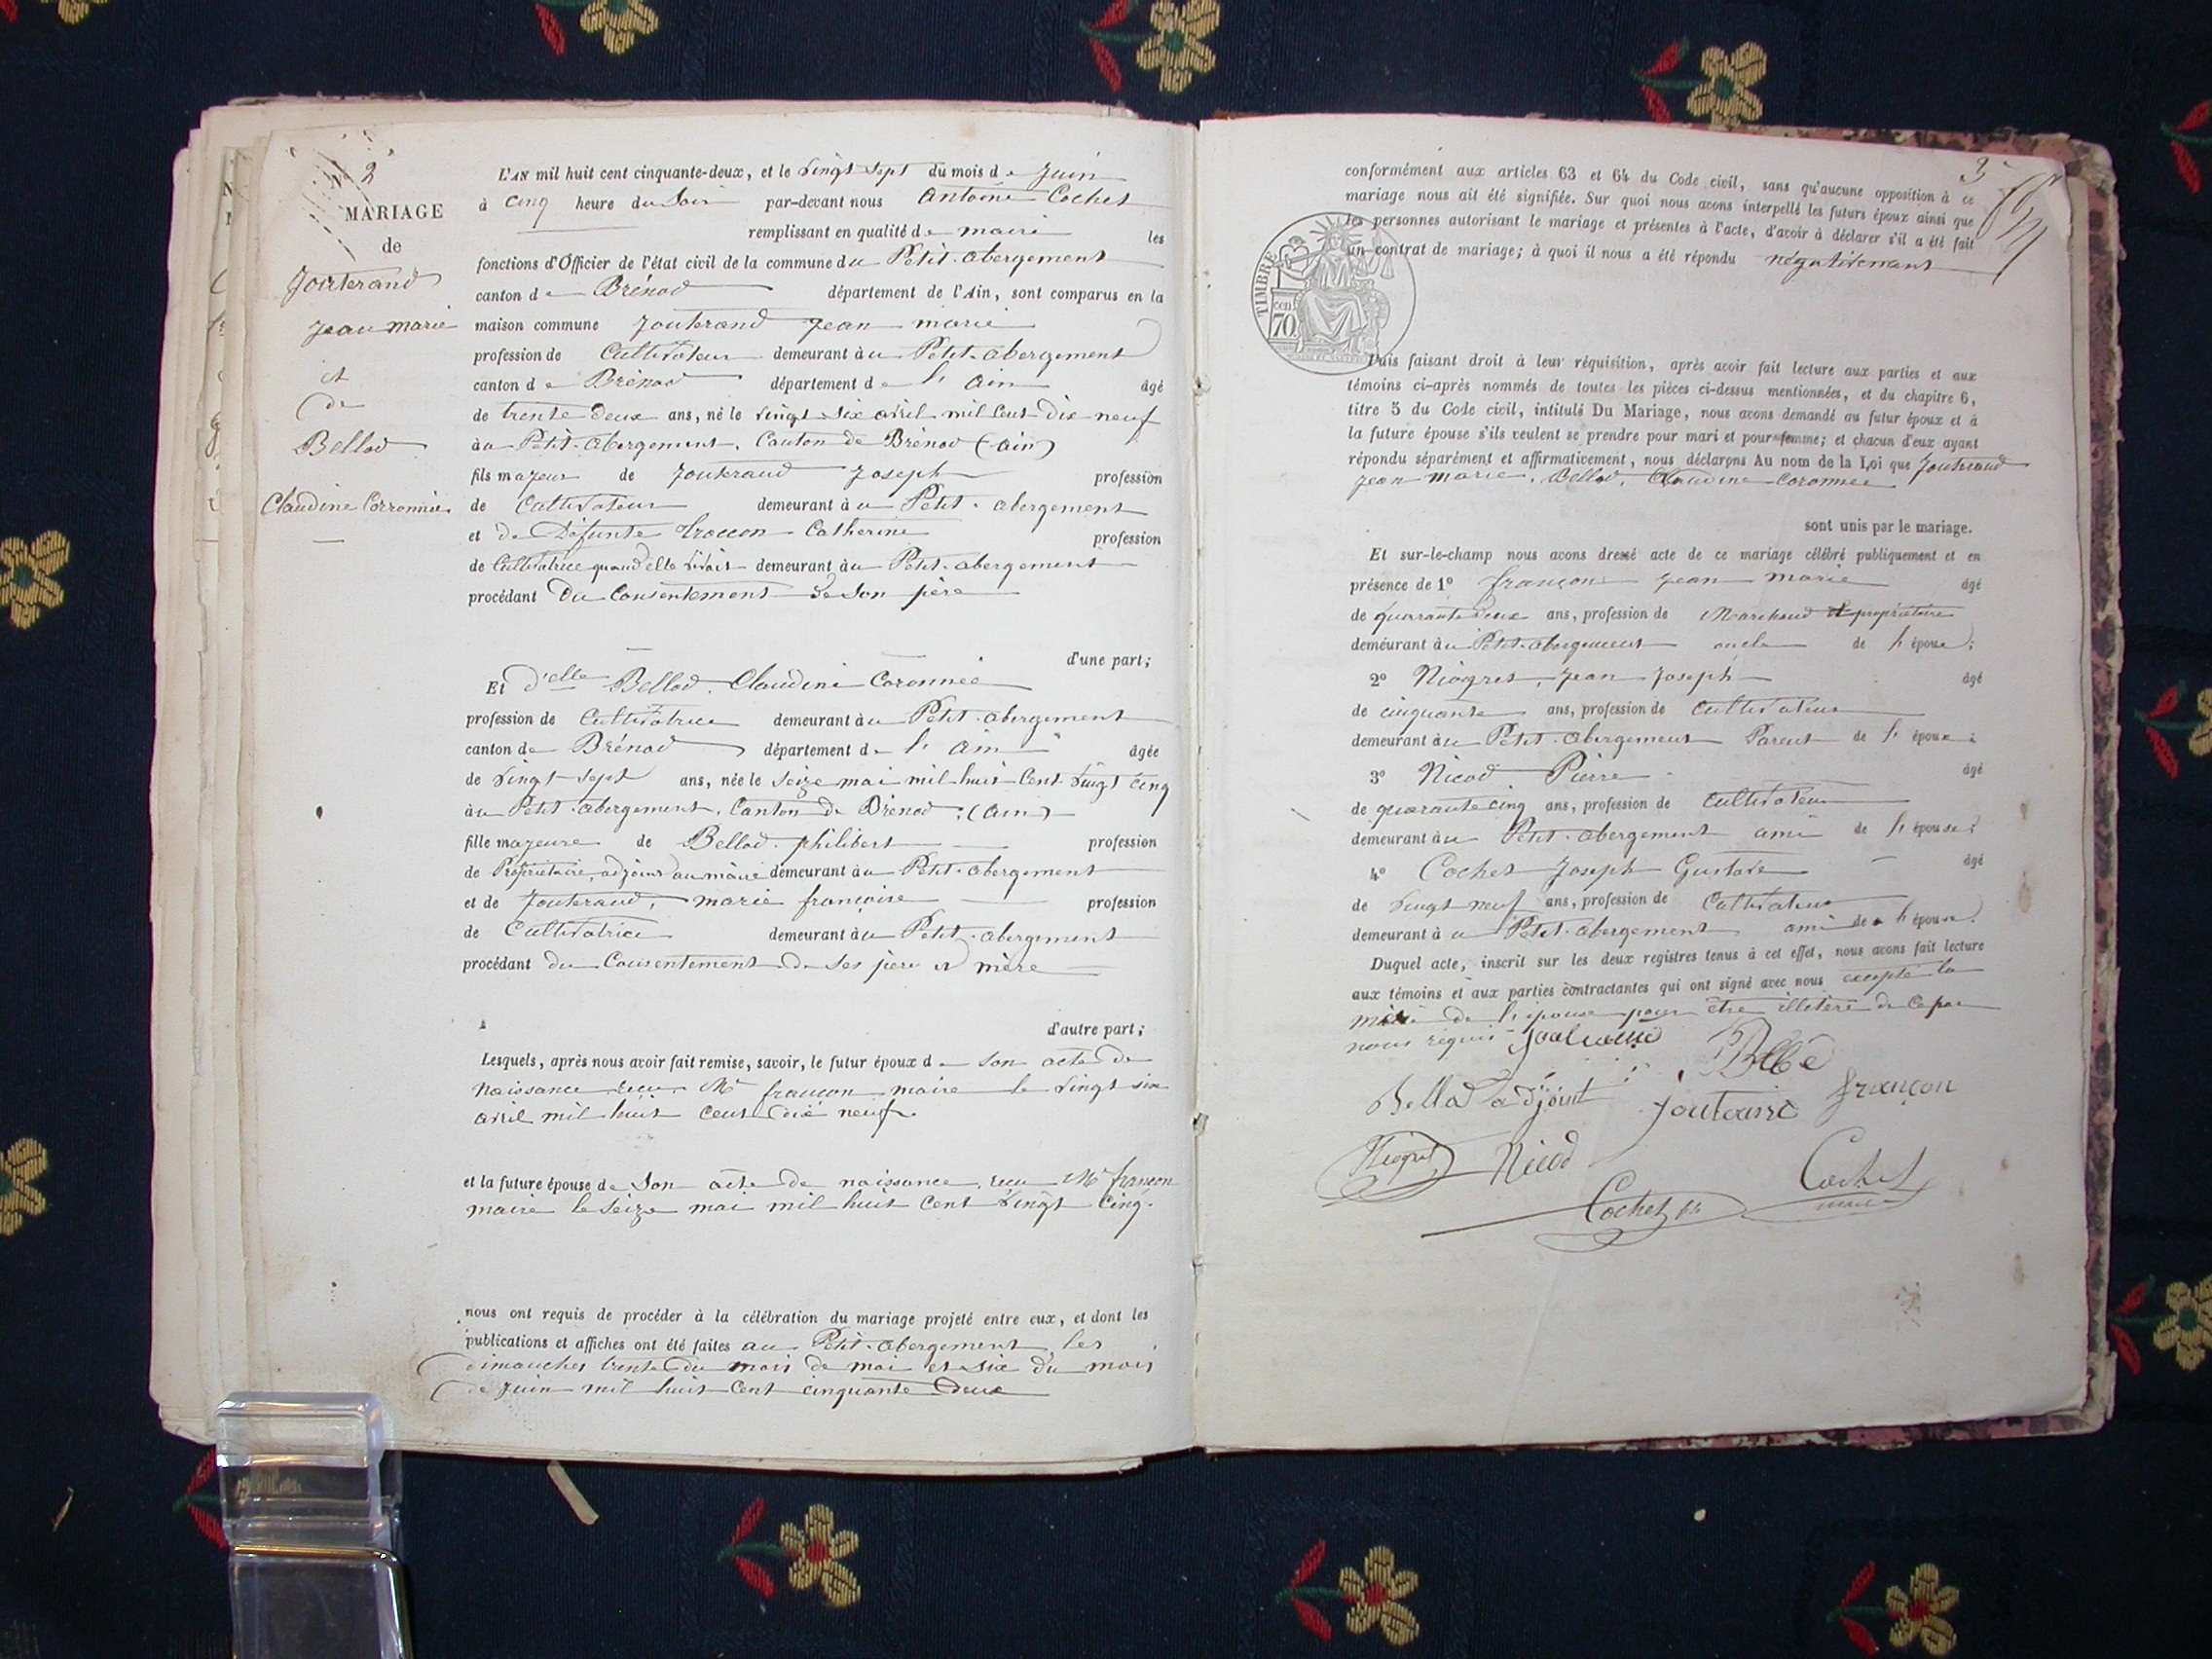 N° 2
MARIAGE
de
Jouterand
Jean marie
et
de
Bellod
Claudine Corronnée
L'AN mil huit cent cinquante-deux, et le vingt sept du mois de Juin
à cinq heure du Soir par-devant nous Antoine Cochet
remplissant en qualité de maire les
fonctions d'Officier de l'état civil de la commune du Petit-abergement
canton de Brénod département de l'Ain, sont comparus en la
maison commune Jouterand Jean marie
profession de Cultivateur demeurant au Petit-abergement
canton de Brénod département de l'ain âgé
de trente deux ans, né le vingt six avril mil cent dix neuf
au Petit-abergement, Canton de Brénod (ain)
fils majeur de Jouterand Joseph profession
de Cultivateur demeurant au Petit-abergement
et de Défunte Catherine profession
de Cultivatrice quand elle vivait demeurant au Petit-abergement
procédant du Consentement de son père
d'une part;
Et d'elle Bellod, Claudine Coronnée
profession de Cultivatrice demeurant au Petit-abergement
canton de Brénod département de l'ain âgée
de vingt sept ans, née le seize mai mil huit cent vingt cinq
au Petit-abergement, Canton de Brénod (ain)
fille majeure de Bellod philibert profession
de Propriétaire, adjoint au maire demeurant au Petit-abergement
et de Jouterand, marie françoise profession
de Cultivatrice demeurant au Petit-abergement
procédant du Consentement de ses père et mère
d'autre part;
Lesquels, après nous avoir fait remise, savoir, le futur époux de son acte de
Naissance reçu Mr françon maire le vingt six
avril mil huit cent dix neuf.
et la future épouse de son acte de naissance, reçu Mr françon
maire le seize mai mil huit cent vingt cinq.
nous ont requis de procéder à la célébration du mariage projeté entre eux, et dont les
publications et affiches ont été faites au Petit-abergement les
dimanches trente du mois de mai et six du mois
de juin mil huit cent cinquante deux
3
conformément aux articles 63 et 64 du Code civil, sans qu'aucune opposition à ce
mariage nous ait été signifiée. Sur quoi nous avons interpellé les futurs époux ainsi que
les personnes autorisant le mariage et présentes à l'acte, d'avoir à déclarer s'il a été fait
un contrat de mariage; à quoi il nous a été répondu négativement
TIMBRE
cen
70
Puis faisant droit à leur réquisition, après avoir fait lecture aux parties et aux
témoins ci-après nommés de toutes les pièces ci-dessus mentionnées, et du chapitre 6,
titre 5 du Code civil, intitulé Du Mariage, nous avons demandé au futur époux et à
la future épouse s'ils veulent se prendre pour mari et pour femme; et chacun d'eux ayant
répondu séparément et affirmativement, nous déclarons Au nom de la Loi que Jouterand
Jean marie, Bellod, Claudine Coronnée
sont unis par le mariage.
Et sur-le-champ nous avons dressé acte de ce mariage célébré publiquement et en
présence de 1° françon Jean marie âgé
de quarante deux ans, profession de Marchand et propriétaire
demeurant au Petit-abergement oncle de l'époux;
2° Niogret, Jean Joseph âgé
de cinquante ans, profession de Cultivateur
demeurant au Petit-abergement Parent de l'époux;
3° Nicod Pierre âgé
de quarante cinq ans, profession de Cultivateur
demeurant au Petit-abergement ami de l'épouse;
4° Cochet Joseph Gustave âgé
de vingt neuf ans, profession de Cultivateur
demeurant au Petit-abergement ami de l'épouse.
Duquel acte, inscrit sur les deux registres tenus à cet effet, nous avons fait lecture
aux témoins et aux parties contractantes qui ont signé avec nous excepté la
mère de l'épouse pour être illétéré de ce par
nous requis
Bellod adjoint françon
Niogret Nicod
Cochet fils Cochet
maire